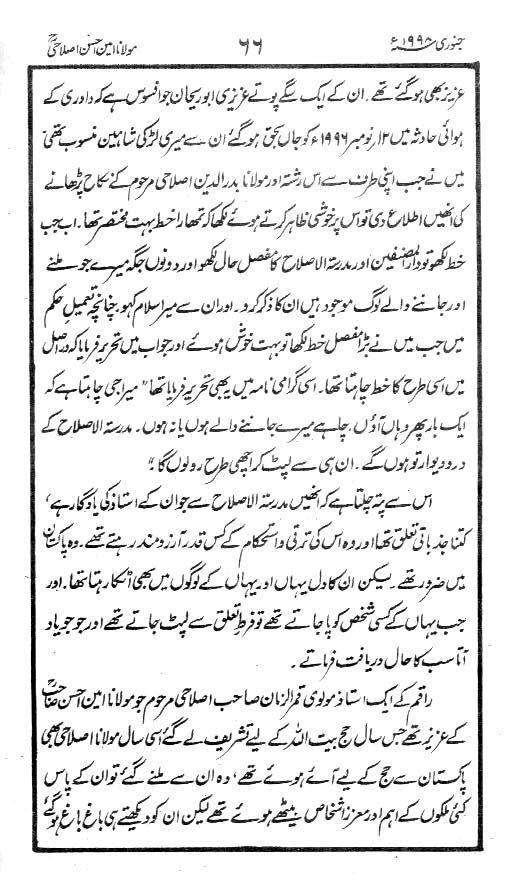 جنوری ۱۹۹۸ء ۶۶ مولانا امین احسن اصلاحیؒ
عزیز بھی ہوگئے تھے۔ ان کے ایک سگے پوتے عزیزی ابوریحان جو افسوس ہے کہ دادری کے
ہوائی حادثہ میں ۱۲ر نومبر ۱۹۹۶ء کو جاں بحق ہوگئے ان سے میری لڑکی شاہین منسوب تھی
میں نے جب اپنی طرف سے اس رشتہ اور مولانا بدرالدین اصلاحی مرحوم کے نکاح پڑھانے
کی انھیں اطلاع دی تو اس پر خوشی ظاہر کرتے ہوئے لکھا کہ تمھارا خط بہت مختصر تھا۔ اب جب
خط لکھو تو دارالمصنفین اور مدرستہ الاصلاح کا مفصل حال لکھو اور دونوں جگہ میرے جو ملنے
اور جاننے والے لوگ موجود ہیں ان کا ذکر کرو۔ اور ان سے میرا سلام کہو۔ چنانچہ تعمیلِ حکم
میں جب میں نے بڑا مفصل خط لکھا تو بہت خوش ہوئے اور جواب میں تحریر فرمایا کہ دراصل
میں اسی طرح کا خط چاہتا تھا۔ اسی گرامی نامہ میں یہ بھی تحریر فرمایا تھا "میرا جی چاہتا ہے کہ
ایک بار پھر وہاں آؤں۔ چاہے میرے جاننے والے ہوں یا نہ ہوں۔ مدرستہ الاصلاح کے
در و دیوار تو ہوں گے۔ ان ہی سے لپٹ کر اچھی طرح رولوں گا"
اس سے پتہ چلتا ہے کہ انھیں مدرستہ الاصلاح سے جو ان کے استاذ کی یادگار ہے،
کتنا جذباتی تعلق تھا اور وہ اس کی ترقی و استحکام کے کس قدر آرزومند رہتے تھے۔ وہ پاکستان
میں ضرور تھے۔ لیکن ان کا دل یہاں اور یہاں کے لوگوں میں بھی اٹکا رہتا تھا۔ اور
جب یہاں کے کسی شخص کو پا جاتے تھے تو فرطِ تعلق سے لپٹ جاتے تھے اور جو جو یاد
آتا سب کا حال دریافت فرماتے۔
راقم کے ایک استاذ مولوی قمرالزماں صاحب اصلاحی مرحوم جو مولانا امین احسن صاحبؒ
کے عزیز تھے جس سال حج بیت اللہ کے لیے تشریف لے گئے اسی سال مولانا اصلاحی بھی
پاکستان سے حج کے لیے آئے ہوئے تھے، وہ ان سے ملنے گئے تو ان کے پاس
کئی ملکوں کے اہم اور معزز اشخاص بیٹھے ہوئے تھے لیکن ان کو دیکھتے ہی باغ باغ ہوگئے